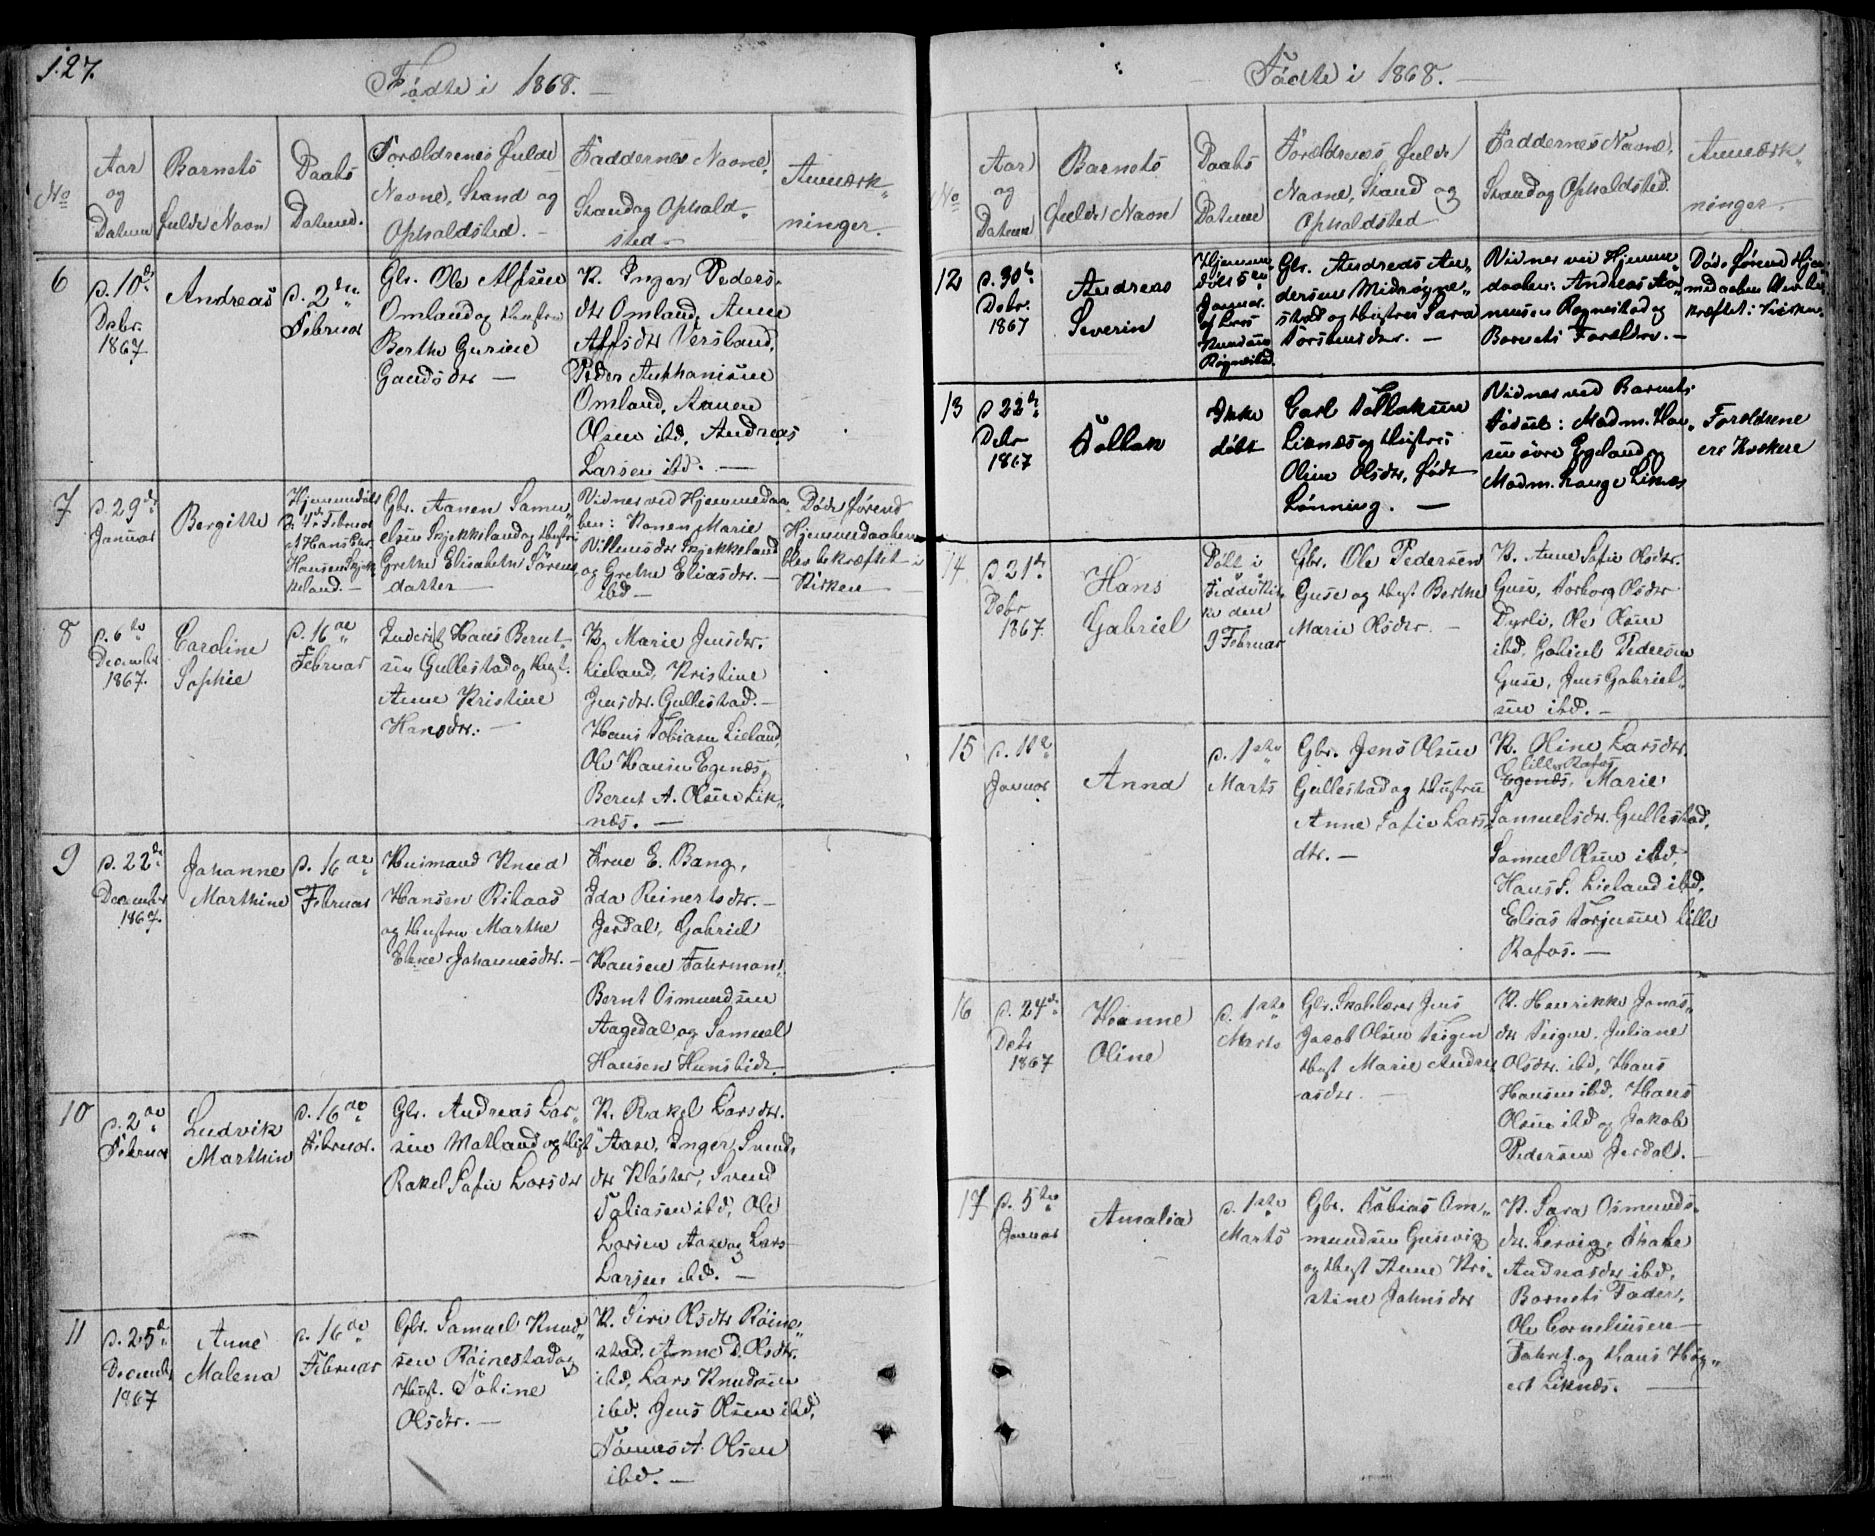 127.
Fødte i 1868. —
No
Aar og Datum
Barnets fulde Navn
Daabs Datum.
Forældrenes fulde Navne, Stand og Opholdsted. —
Faddernes Navne, Stand og Opholdsted —
Anmærkninger. —
6
d. 10de Debr. 1867
Andreas
d. 2den Februar
Gbr. Ole Alfsen
Omland og Hustru
Berthe Gurine
Gundsdtr —
K. Inger Peders-
dtr Omland, Anne
Alfsdtr Versland,
Peder Anthonisen
Omland, Aanen
Olsen ibd, Andreas
Larsen ibd. —
7
d. 29de Januar
Bergitte
Hjemmedøbt
d. 1ste Februar
af Hans
Hansen Skjek-
keland. —
Gbr. Aanen Samu-
elsen Skjekkeland og Hustru
Grethe Elisabeth Sørens-
datter —
Vidner ved Hjemmedaa-
ben: Konen Marie
Villumsdtr Skjekkeland
og Grethe Eliasdtr. —
ibd —
Døde førend
Hjemmedaaben
blev bekræftet i
Kirken —
8
d. 6te December 1867.
Caroline Sophie
d. 16de Februar
Inderst Hans Bernt-
sen Gullestad og Hust.
Anne Kristine
Hansdtr. —
K. Marie Jensdtr.
Lieland, Kristine
Jensdtr. Gullestad. —
Hans Tobiasen Lieland,
Ole Hansen Egenæs,
Bernt A. Olsen Lik-
næs. —
9
d. 22de December 1867.
Johanne Marthine
d. 16de Februar
Huusmand Knud
Hansen Rishaas
og Hustru Marthe
Elene Johannesdtr. —
Frue E. Bang,
Ida Reinertsdtr. —
Jerdal, Gabriel
Hansen Fahrman,
Bernt Osmundsen
Aagedal og Samuel
Hansen Hunsbidt. —
10
d. 2de Februar
Ludvik Marthin
d. 16de Februar.
Gbr. Andreas Lar-
sen Motland og Hust
Rakel Sofie Larsdtr
K. Rakel Larsdtr.
Aase, Inger Svends-
dtr Kloster, Svend
Tobiasen ibd, Ole
Larsen Aase og Lars
Larsen ibd. —
11
d. 25de December 1867
Anne Malena
d. 16de Februar
Gbr. Samuel Knud-
sen Röinestad og
Hust. Tobine
Olsdtr. —
K. Siri Olsdtr Röine-
stad. Anne D. Olsdtr.
ibd, Lars Knudsen
ibd. Jens Olsen ibd,
Tønnes A. Olsen
ibd. —
Fødte i 1868. —
No
Aar og Datum
Barnets fulde Navn
Daabs Datum
Forældrenes fulde Navne, Stand og Opholdsted
Faddernes Navne, Stand og Opholdsted.
Anmærkninger. —
12
d. 30te Debr. 1867
Andreas Severin
Hjemme-
døbt 5te
Januar
af Lars
Knudsen
Røgnestad.
Gbr. Andreas An-
dersen Midrøgne-
stad og Hustru Sara
Torstensdtr. —
Vidner ved Hjemme-
daaben: Andreas Aa-
nensen Røgnestad og
Barnets Forældre. —
Døde førend Hjem-
medaaben blev be-
kræftet i Kirken.
13
d. 22de Debr 1867
Tollak
Ikke døbt
Carl Tollaksen
Liknæs og Hustru
Oline Olsdtr, født
Lønning. —
Vidner ved Barnets
Fødsel: Madm. Han-
sen øvre Egeland og
Madm. Lange Liknæs
Forældrene ere Kvækere
14
d. 21de Debr 1867.
Hans Gabriel
Døbt i
Fedde Kir-
ke den
9 Februar
Gbr. Ole Pedersen
Guse og Hust Berthe
Marie Olsdtr. —
K. Anne Sofie Olsdtr.
Guse, Torborg Olsdtr
Dyrli, Ole Olsen
ibd, Gabriel Pedersen
Guse, Jens Gabriel-
sen ibd. —
15
d. 11te Januar
Anna
d. 1ste Marts
Gbr. Jens Olsen
Gullestad og Hustru
Anne Sofie Lars-
dtr. —
K. Oline Larsdtr.
lille Rafos
Egenæs, Marie
Samuelsdtr. Gullestad,
Samuel Olsen ibd,
Hans S. Lieland ibd,
Elias Torjusen lille
Rafos. —
16
d. 24de Debr 1867
Hanne Oline
d. 1ste Marts
Gbr. Skolelærer Jens
Jacob Olsen Teigen
Hust Marie Andre-
asdtr. —
K. Henrikke Jonas-
dtr Teigen, Juliane
Olsdtr. ibd, Hans
Hansen ibd, Hans
Olsen ibd og Jakob
Pedersen Jerdal. —
17
d. 5te Januar
Amalia
d. 1ste Marts
Gbr. Tobias Om-
mundsen Gusevig
og Hust Anne Kri-
stine Johnsdtr
K. Sara Osmunds-
dtr. Lervig, Thale
Andreasdtr ibd,
Barnets Fader,
Ole Corneliusen —
Fahret og Hans Høg-
ert Liknæs. —